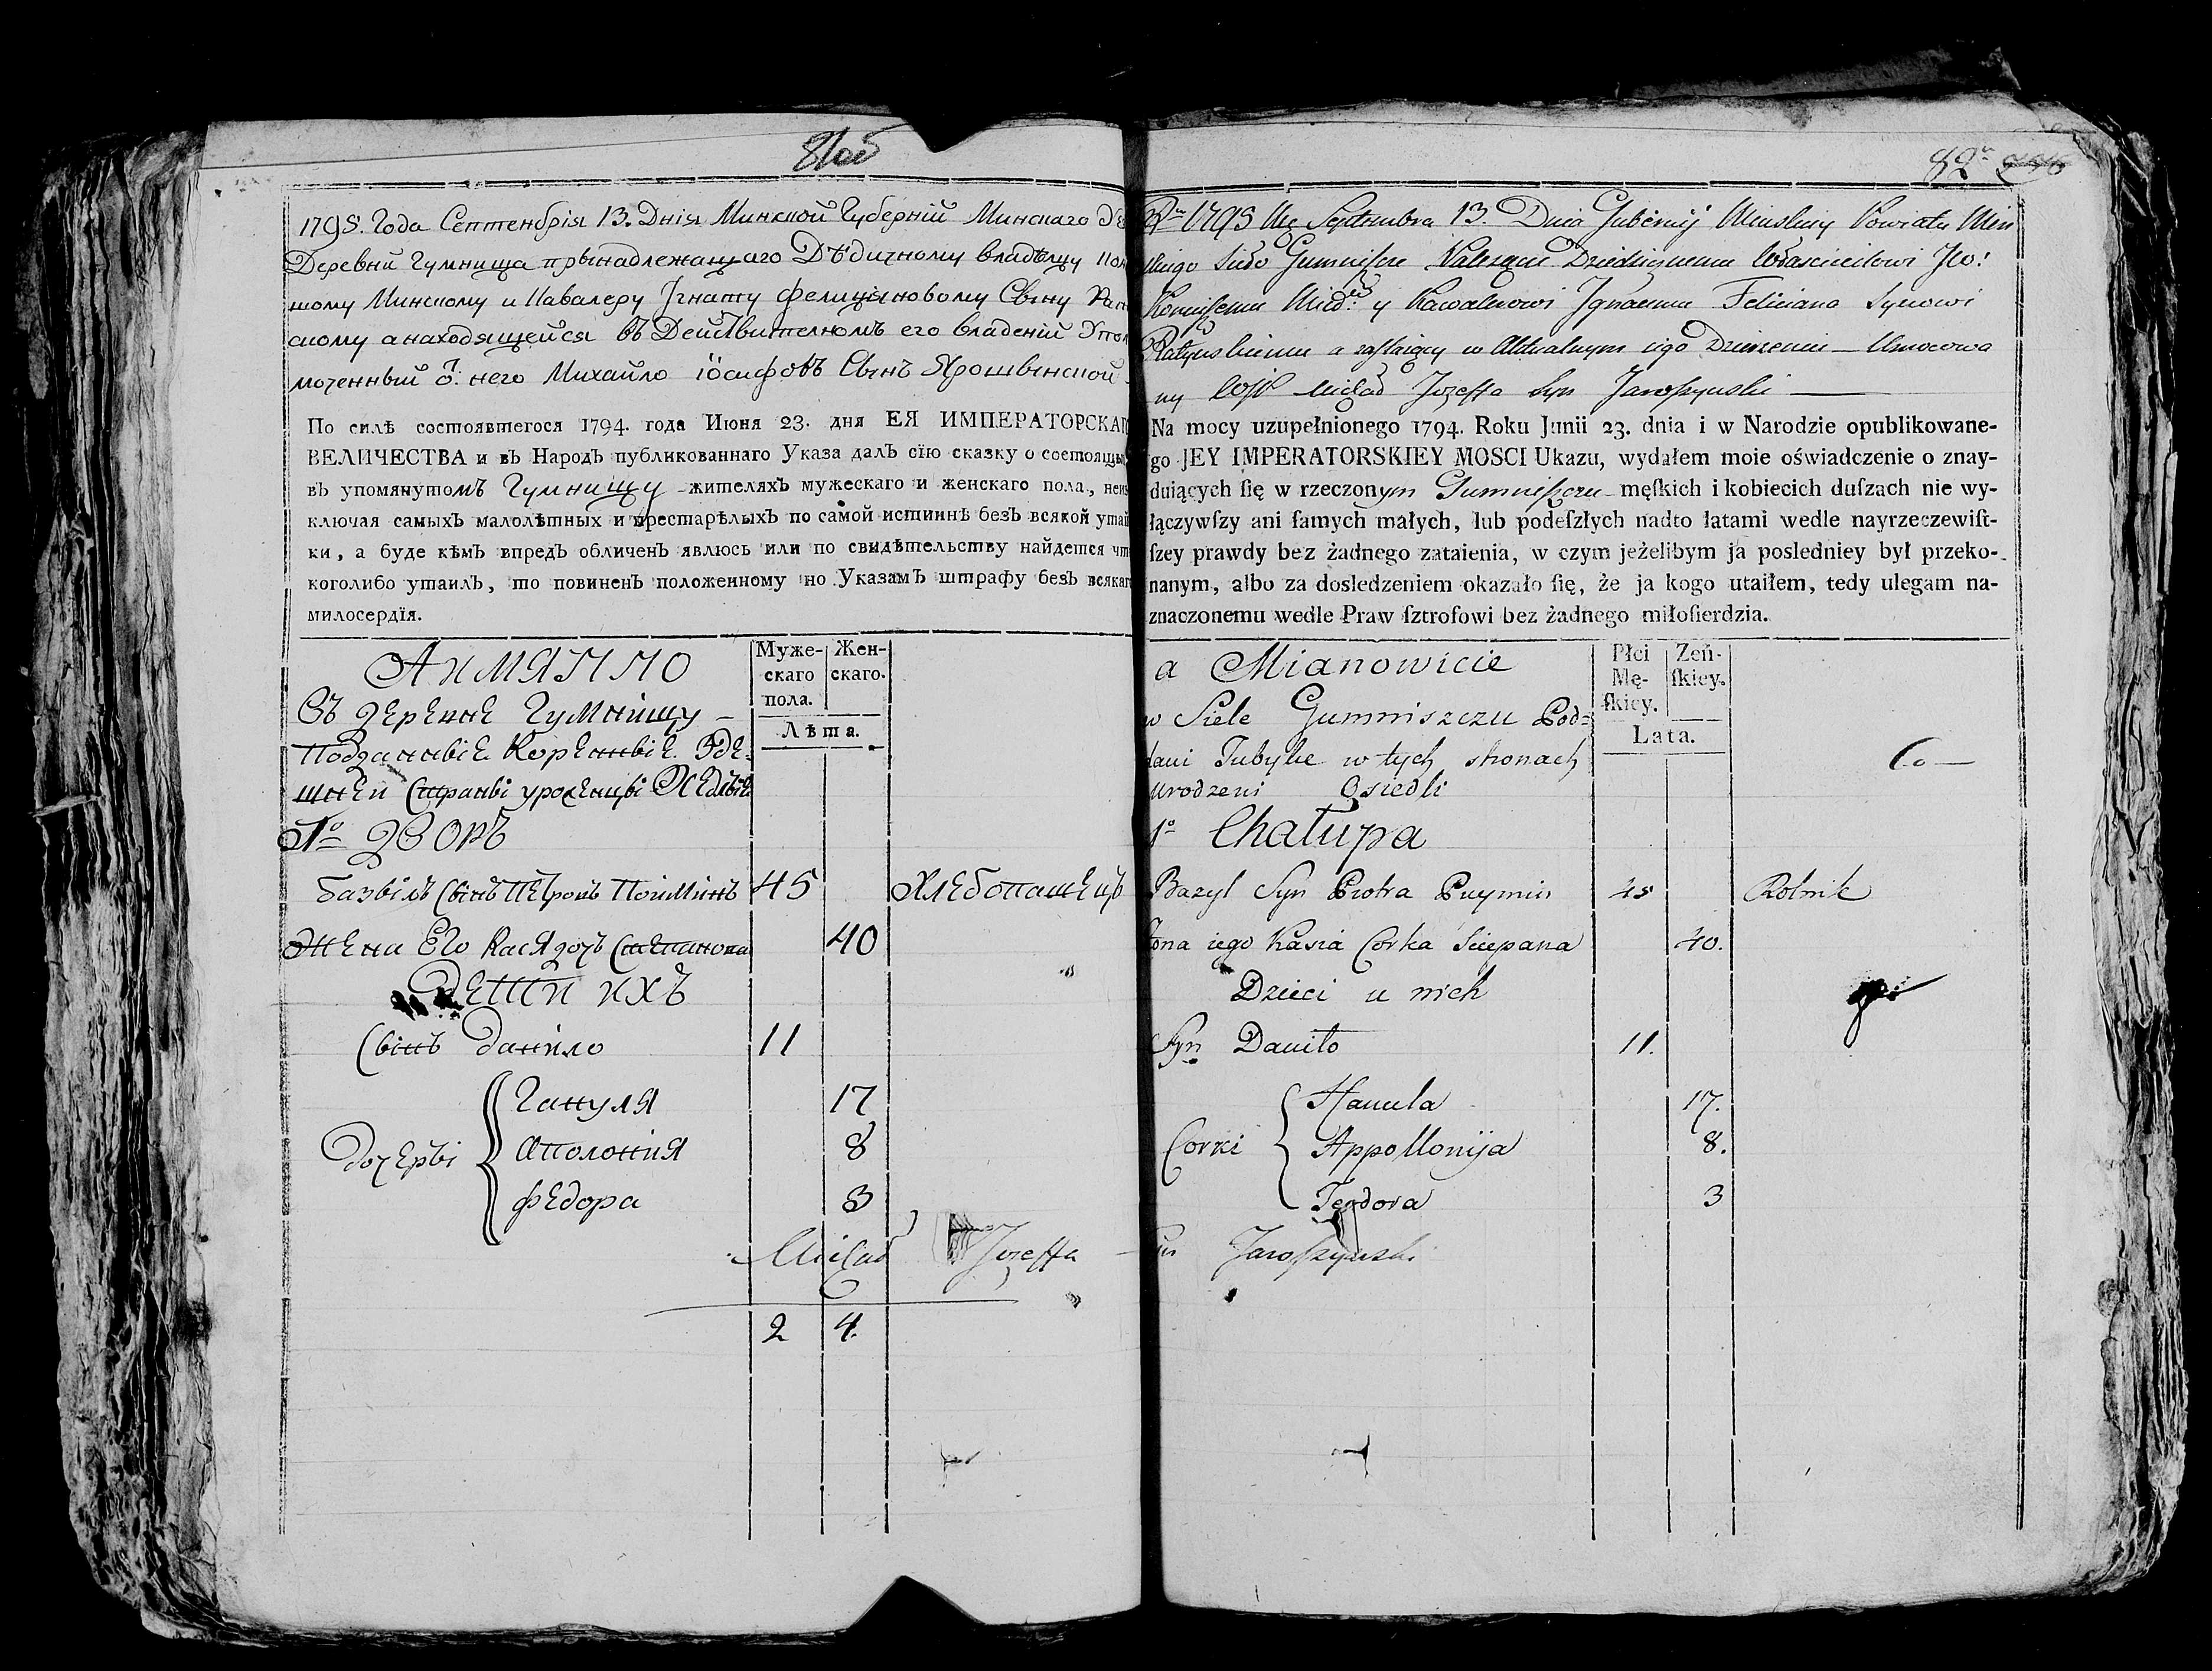 81об
1795. Года Септенбрія 13. Днія Минской Губерніи Минскаго
Деревни Гумнища прынадлежащаго Дѣдичному владѣлцу
шому Минскому и Кавалеру Ігнату Фелиціяновому Сыну
скому а находящейся въ Действителномъ его владеніи Упол
моченный от него Михайло іосифовъ Сынъ Ярошынской
По силѣ состоявшегося 1794. года Июня 23. дня ЕЯ ИМПЕРАТОРСКАГ
ВЕЛИЧЕСТВА и въ Народъ публикованнаго Указа далъ сїю сказку о состоящих
въ упомянутомъ Гумнищу жителяхъ мужескаго и женскаго пола, неис
ключая самыхъ малолѣтныхъ и престарѣлыхъ по самой истиннѣ безъ всякой утай
ки, а буде кѣмъ впредь обличенъ явлюсь или по свидѣтельству найдется что
коголибо утаилъ, то повиненъ положенному по Указамъ штрафу безъ всякаго
милосердїя.
Аимянно
Муже-скаго пола.
Жен-скаго.
Лѣта.
Въ деревне Гумнищу
Подданныіе Коренныіе Зде-
шней Страны уроженцы
1º дворъ
Базыль Сынъ Петровъ Пуйминъ 45 Хлебопашецъ
Жена Его Кася дочь Степанова 40
дети ихъ
Сынъ данило 11
дочеры
Гануля 17
Аполонія 8
Федора 3
Michał Jozeffa
2 4
82
Rku 1795 Mca Septembra 13. Dnia Gubernij Minskiey Powiatu Min
skiego Sieło Gumniszcze Należące Dziedzicznemu Włascicielowi JW:
y Kawalerowi Jgnacemu Feliciana Synowi
Ratynskiemu a zostaiący w Aktualnym iego Dzierzeniu — Umocowa
ny Michał Jozeffa Syn Jaroszynski —
Na mocy uzupełnionego 1794. Roku Junii 23. dnia i w Narodzie opublikowane-
go JEY IMPERATORSKIEY MOSCI Ukazu, wydałem moie oświadczenie o znay-
duiących ſię w rzeczonym Gumniszczu męſkich i kobiecich duſzach nie wy-
łączywſzy ani ſamych małych, lub podeſzłych nadto latami wedle nayrzeczewiſt-
ſzey prawdy bez żadnego zataienia, w czym jeżelibym ja posledniey był przeko-
nanym, albo za dosledzeniem okazało ſię, że ja kogo utaiłem, tedy ulegam na-
znaczonemu wedle Praw ſztrofowi bez żadnego miłoſierdzia.
a Mianowicie
Płci Mę-ſkiey.
Zeń-ſkiey.
Lata.
w Siele Gumniszczu Pod-
dani Tubylce w tych stronach
urodzeni Osiedli
1º Chałupa
Bazyl Syn Piotra Puymin 45 Rolnik
Żona iego Kasia Corka Sciepana 40.
Dzieci u nich
Syn Daniło 11.
Corki
Hanula 17.
Appollonija 8.
Teodora 3
Syn Jaroszynski